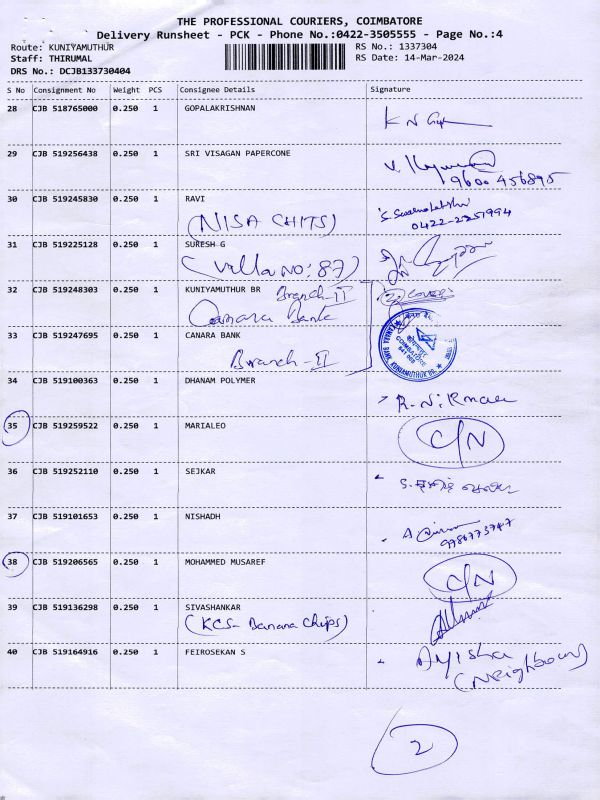 THE PROFESSIONAL COURIERS, COIMBATORE
Delivery Runsheet - PCK - Phone No.:0422-3505555 - Page No.:4
Route: KUNIYAMUTHUR
RS No.: 1337304
Staff: THIRUMAL
RS Date: 14-Mar-2024
DRS No.: DCJB133730404
S No Consignment No Weight PCS Consignee Details Signature
28 CJB 518765000 0.250 1 GOPALAKRISHNAN K N
29 CJB 519256438 0.250 1 SRI VISAGAN PAPERCONE V.
9600 456895
30 CJB 519245830 0.250 1 RAVI
(NISA CHITS) 0422-2251994
31 CJB 519225128 0.250 1 SURESH G
(Villa NO: 87)
32 CJB 519248303 0.250 1 KUNIYAMUTHUR BR Branch-II
Canara Bank
33 CJB 519247695 0.250 1 CANARA BANK
Branch-II
COIMBATORE
34 CJB 519100363 0.250 1 DHANAM POLYMER
35 CJB 519259522 0.250 1 MARIALEO C/N
36 CJB 519252110 0.250 1 SEJKAR
37 CJB 519101653 0.250 1 NISHADH
9786773747
38 CJB 519206565 0.250 1 MOHAMMED MUSAREF C/N
39 CJB 519136298 0.250 1 SIVASHANKAR
(KCS- Banana Chips)
40 CJB 519164916 0.250 1 FEIROSEKAN S Ayisha
(Neighbour)
2